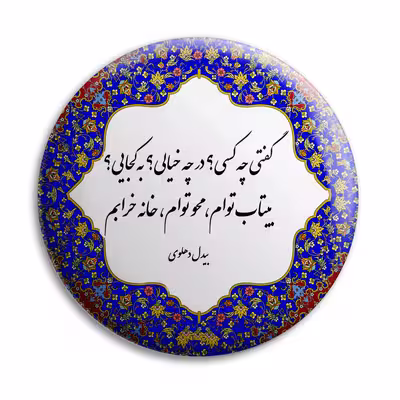 گفتی چه کسی؟ در چه خیالی؟ به کجایی؟
بیتاب توام، محو توام، خانه خرابم
بیدل دهلوی